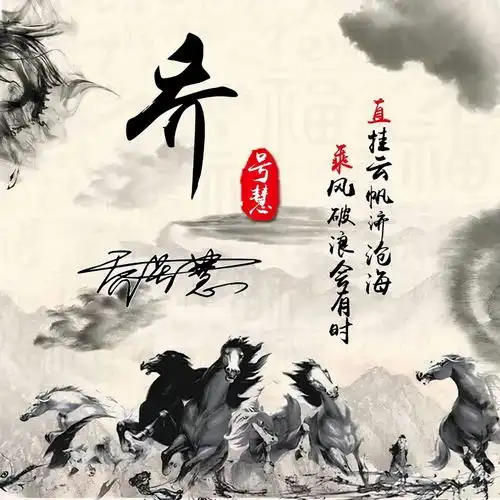 号慧
直挂云帆济沧海
乘风破浪会有时